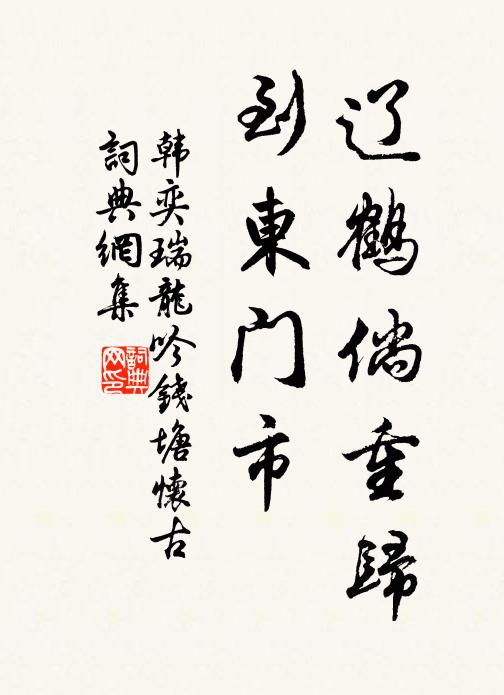 辽鶴倘重歸
到東門市
韩奕瑞龍吟錢塘懷古
詞典網集
詞典网印